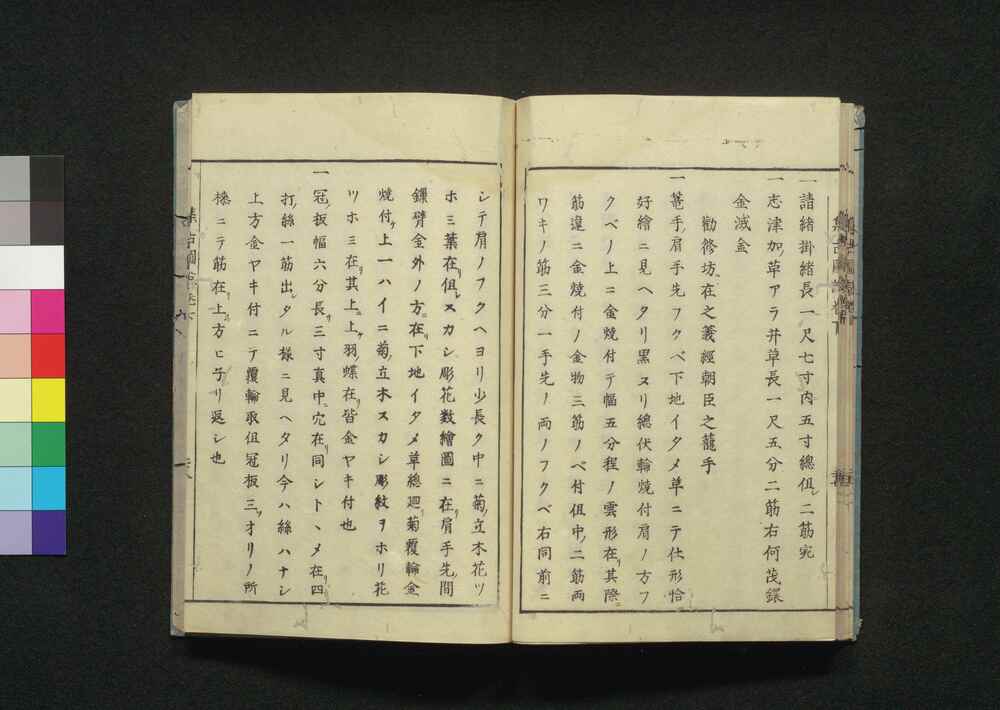 一諸緒掛緒長一尺七寸内五寸總但シ二筋宛
一志津加ノ草アラ井草長一尺五分二筋右何茂鐶
金滅金
勸修坊ニ在之義經朝臣之籠手
一篭手ノ肩手先フクベ下地イタメ草ニテ仕形恰
好繪ニ見ヘタリ黒スリ總伏輪焼付肩ノ方フ
クベノ上ニ金焼付テ幅五分程ノ雲形在リ其際ニ
筋違ニ金焼付ノ金物三筋ノベ付但中ノ二筋両
ワキノ筋三分一手先ノ両ノフクベ右同前ニ
シテ肩ノフクヘヨリ少長ク中ニ菊ノ立木花ツ
ホミ葉在リ但シスカシ彫花数繪圖ニ在リ肩手先ノ間
鏁臂金外ノ方ニ在リ下地イタメ草總廻リ菊覆輪金
焼付ケ上一ハイニ菊ノ立木スカシ彫紋ヲホリ花
ツホミ在リ其上ニ上ケ羽ノ蝶在リ皆金ヤキ付也
一冠ノ板幅六分長サ三寸真中ニ穴在リ同シトヽメ在リ四
打ノ絲一筋出シタル様ニ見ヘタリ今ハ絲ハナシ
上方金ヤキ付ニテ覆輪取但冠板三ツオリノ所
樣ニテ筋在リ上ノ方ヒ子リ返シ也